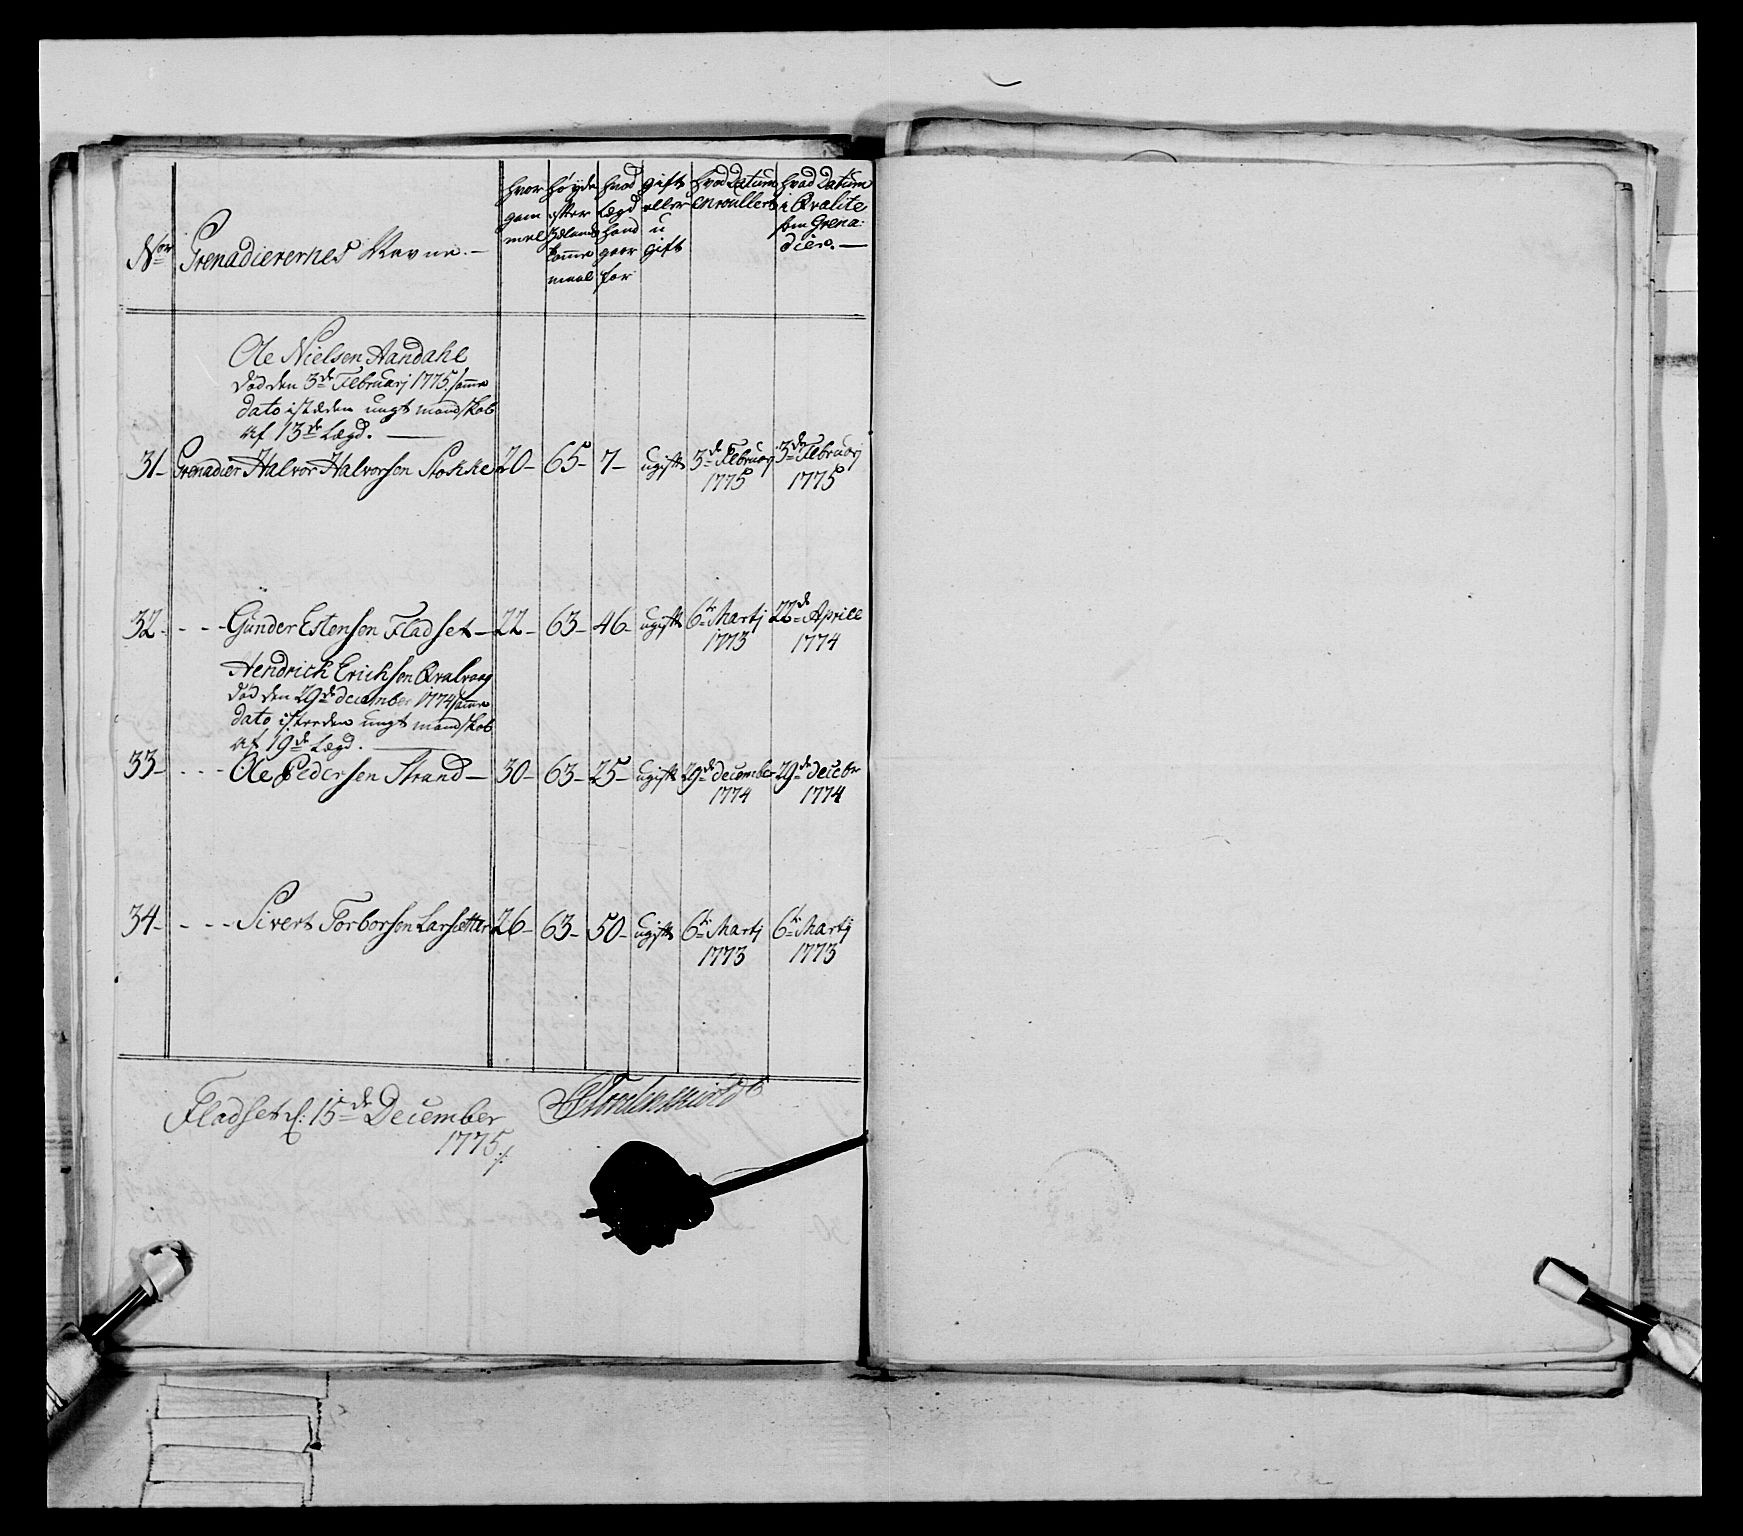 Nor Grenadierernes Navne. — | hvor gam mel | høyde efter Sælands tomme maal | hvad Lægd hand goer for | gift eller u gift | hvad Datum Enroullert | hvad Datum i Qvalite som Grena: dier. —
Ole Nielsen Aandahl
død den 3de Februarj 1775. samme
dato isteden ungt mandskab
af 13de Lægd. —
31- Grenadier Halvor Halvorsen Stokke 20- 65- 7- ugift 3de Februarj 1775 3de Februarj 1775
32. - - - Gunder Estensen Fladset - 22- 63- 46- ugift 6te Martj 1773 22de Aprill 1774
Hendrich Erichsen Qvalvaag
død den 29de december 1774 samme
dato isteden ungt mandskab
af 19de Lægd. —
33- - - - Ole Pedersen Strand - 30- 63- 25- ugift 29de december 1774 29de decebr 1774
34- - - - Sivert Torborsen Larsætter 26- 63- 50- ugift 6te Martj 1773 6te Martj 1773
Fladset d: 15de December
1775 ./.